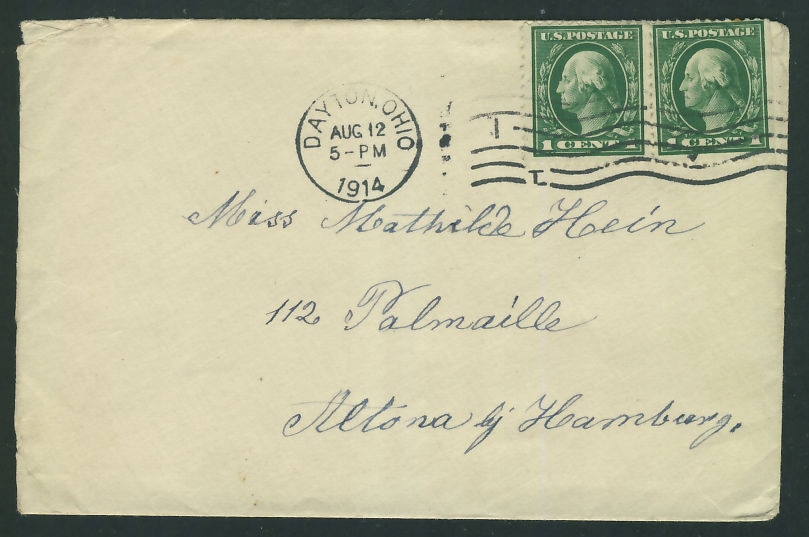 U.S. POSTAGE U.S. POSTAGE
1 CENT 1 1 CENT 1
DAYTON, OHIO
AUG 12
5-PM
1914
Miss Mathilde Hein
112 Palmaille
Altona bj Hamburg.